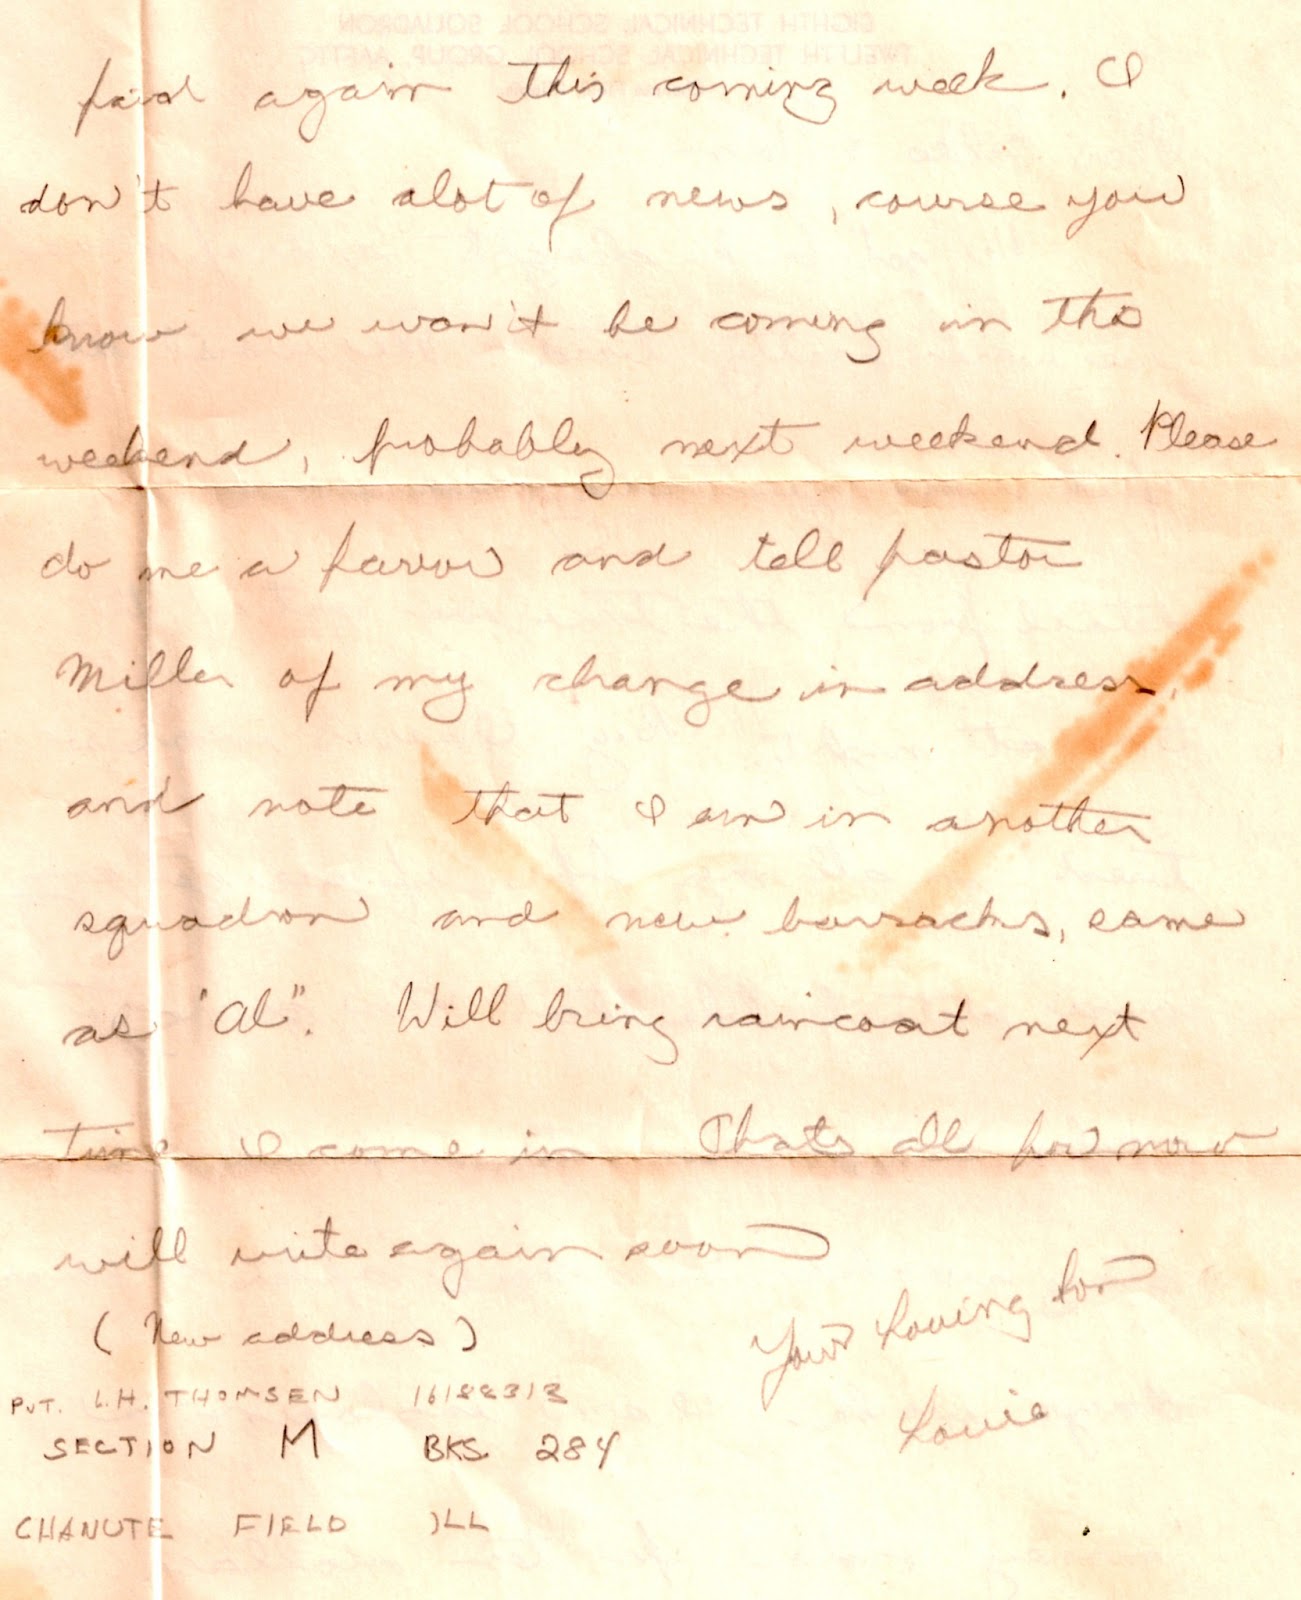 EIGHTH TECHNICAL SCHOOL SQUADRON
TWELFTH TECHNICAL SCHOOL GROUP, AAFTTC
paid again this coming week. I
don't have alot of news, course you
know we won't be coming in this
weekend, probably next weekend. Please
do me a favor and tell pastor
Miller of my change in address,
and note that I am in another
squadron and new barracks, same
as "Al". Will bring raincoat next
time I come in Thats all for now
will write again soon
(New address)
Your Loving son
PVT. L.H. THOMSEN 16188313
Louie
SECTION M BKS. 284
CHANUTE FIELD ILL